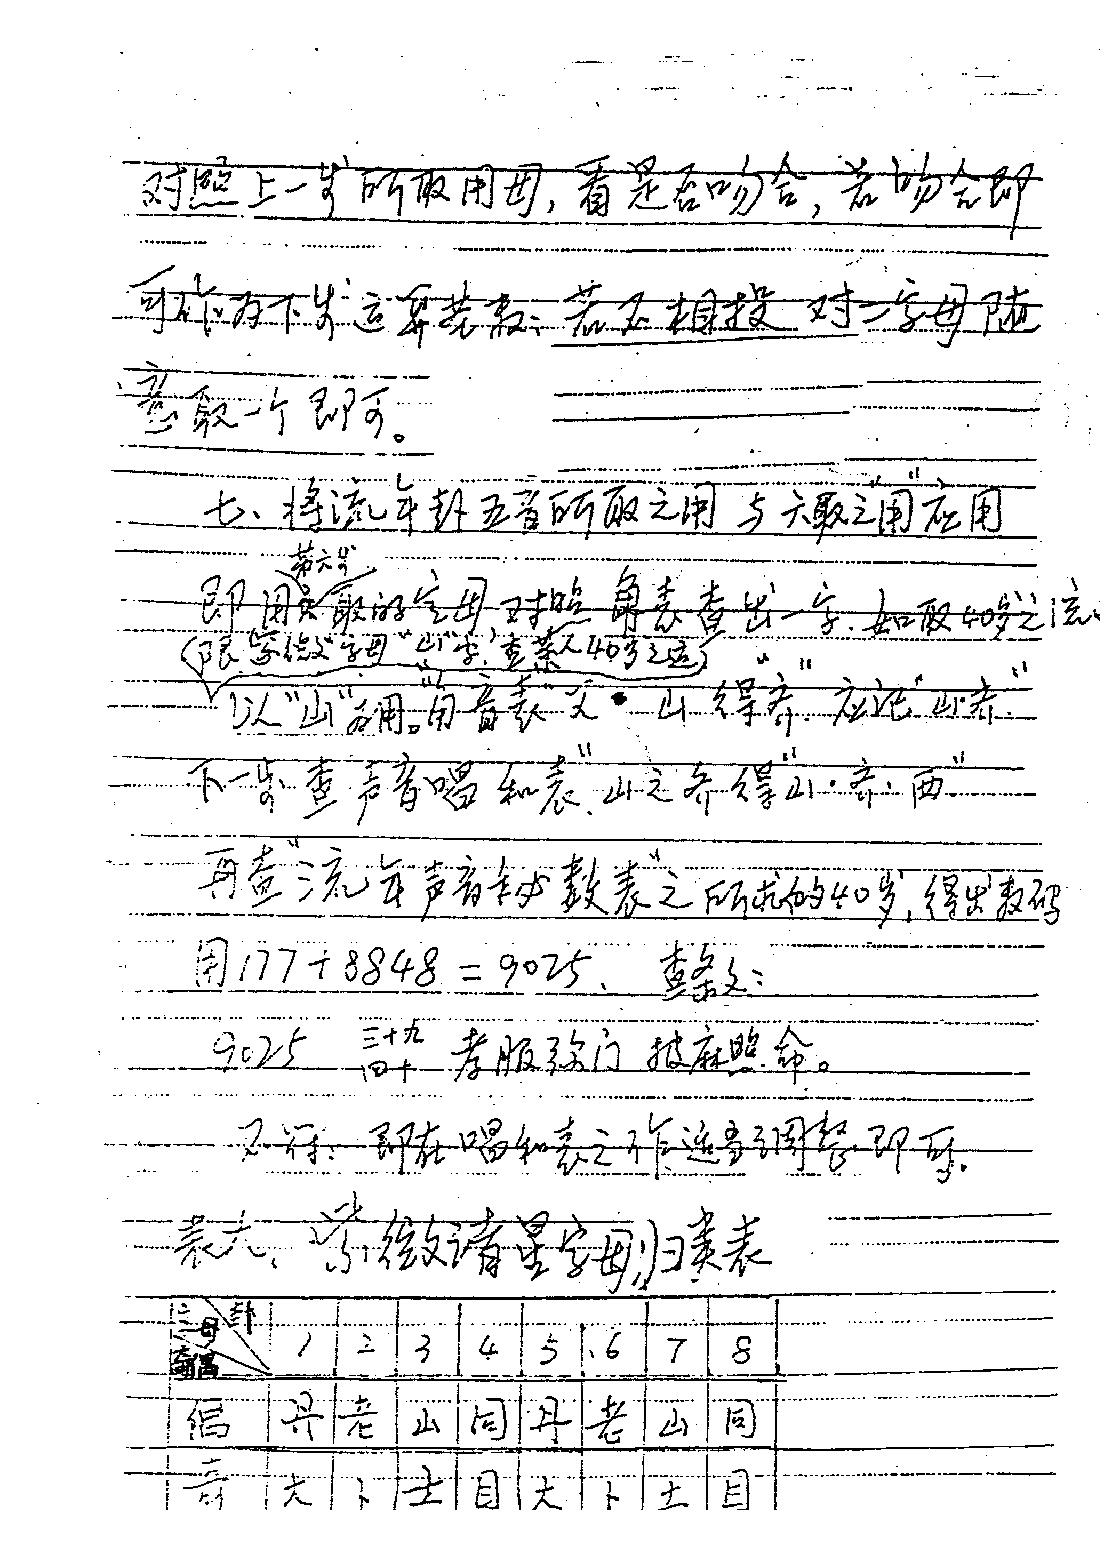 对照上一步所取用母,看是否吻合,若吻合即
可作为下步运算基数;若不相投 对二字母随
意取一个即可。
七、将流年卦五音所取之用与六取之"用"应用
第六步
即用 取的字母对照角表查出一字.如取40岁之流
(限紫微"字母"山"字,查某人40岁之运)
以"山"为用。"角音表"父·山得"齐".应记"山齐"
下一步查声音唱和表",山之齐得"山·齐·西"
再查"流年声音秘数表"之所求的40岁,得出数码
用177+8848=9025、查条文:
9025 三十九 四十 孝服 门 披麻照命。
不符:即在唱和表之作适当调整即可.
表六、紫微诸星字母归类表
母 卦 奇偶 1 2 3 4 5 6 7 8
偶 丹 老 山 同 丹 老 山 同
奇 大 卜 士 目 大 卜 土 目